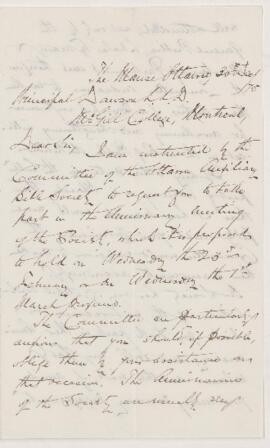 The Manse Ottawa 30th
Principal Dawson L.L.D.
McGill College, Montreal,
Dear Sir, I am instructed by the
Committee of the Ottawa Auxiliary
Bible Society to request you to take
part in the Anniversary meeting
of the Society, which it is proposed
to hold on Wednesday the 23rd
February or on Wednesday the 1st
March
The Committee are particularly
anxious that you should if possible,
oblige them by your assistance on
that occasion. The Anniversaries
of the Society are usually